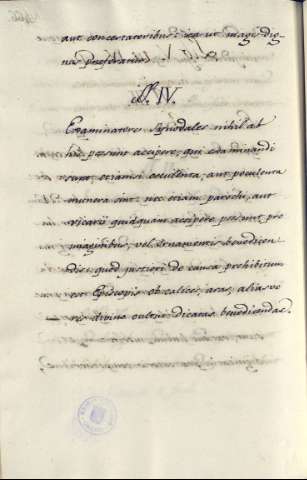 aut concertatoribus; sed ut magis dig-
nus præferatur.
§. IV.
Examinatores Synodales nihil ab
his possunt accipere, qui examinandi
sunt, etiamsi esculenta, aut poculenta
munera sint: nec etiam parochi, aut
vicarii quidquam accipere possunt pro
imaginibus, vel ornamentis benedicen-
dis; quod justiori de causa prohibitum
est Episcopis ob calices, aras, alias ve
res divino cultui dicatas benedicendas.